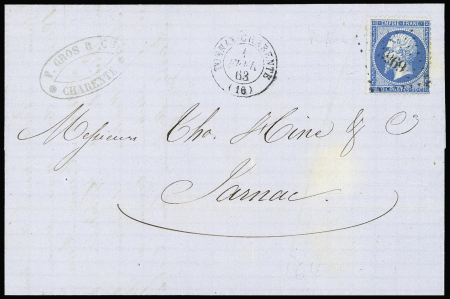 F. GROS & C
CHARENTE
TONNAY-CHARENTE
1
63
(16)
EMPIRE FRANC
Messieurs Tho. Hine & Co
Jarnac.